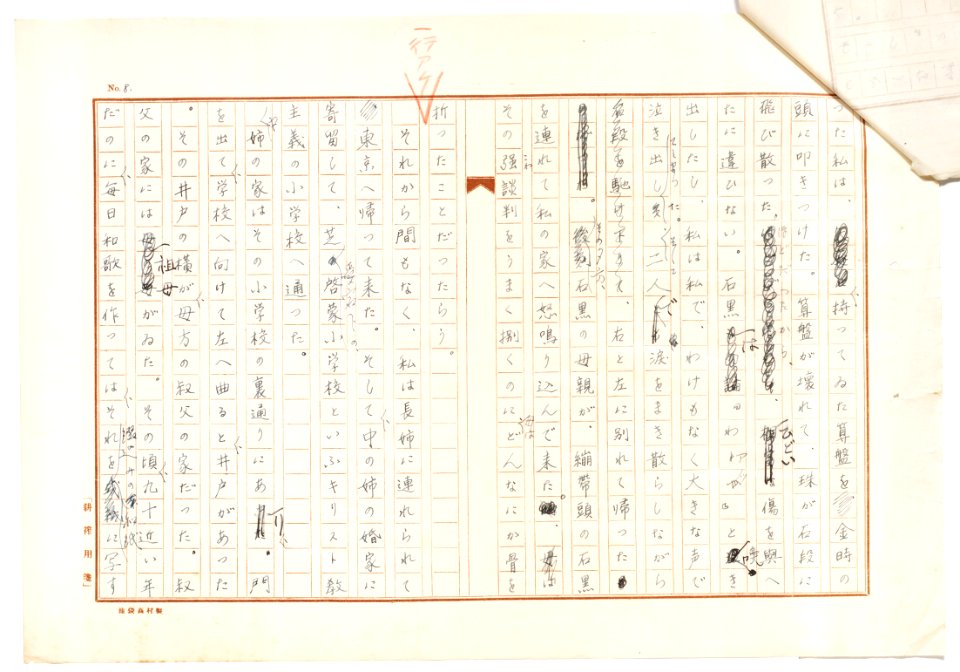 一行アケ
No. 8.
つた私は、持つてゐた算盤を金時の
頭に叩きつけた。算盤が壊れて、珠が石段に
飛び散つた。ひどい傷を與へ
たに違ひない。石黒はわあと喚き
出したし、私は私で、わけもなく大きな声で
泣き出してしまつた。そして二人で涙をまき散らしながら
右と左に別れて帰つた
その夕方、石黒の母親が、繃帯頭の石黒
を連れて私の家へ怒鳴り込んで来た。母は
その強談判をうまく捌くのにどんなにか骨を
折つたことだつたらう。
それから間もなく、私は長姉に連れられて
東京へ帰つて来た。そして、中の姉の婚家に
寄留して、芝の啓蒙小学校といふキリスト教
主義の小学校へ通つた。
姉の家はその小学校の裏通りにあり、門
を出て、学校へ向けて左へ曲ると、井戸があつた
。その井戸の横が、母方の叔父の家だつた。叔
父の家には祖母がゐた。その頃、九十近い年
だのに、毎日和歌を作つては、それを に写す
「耕筰用箋」
味袋高村製